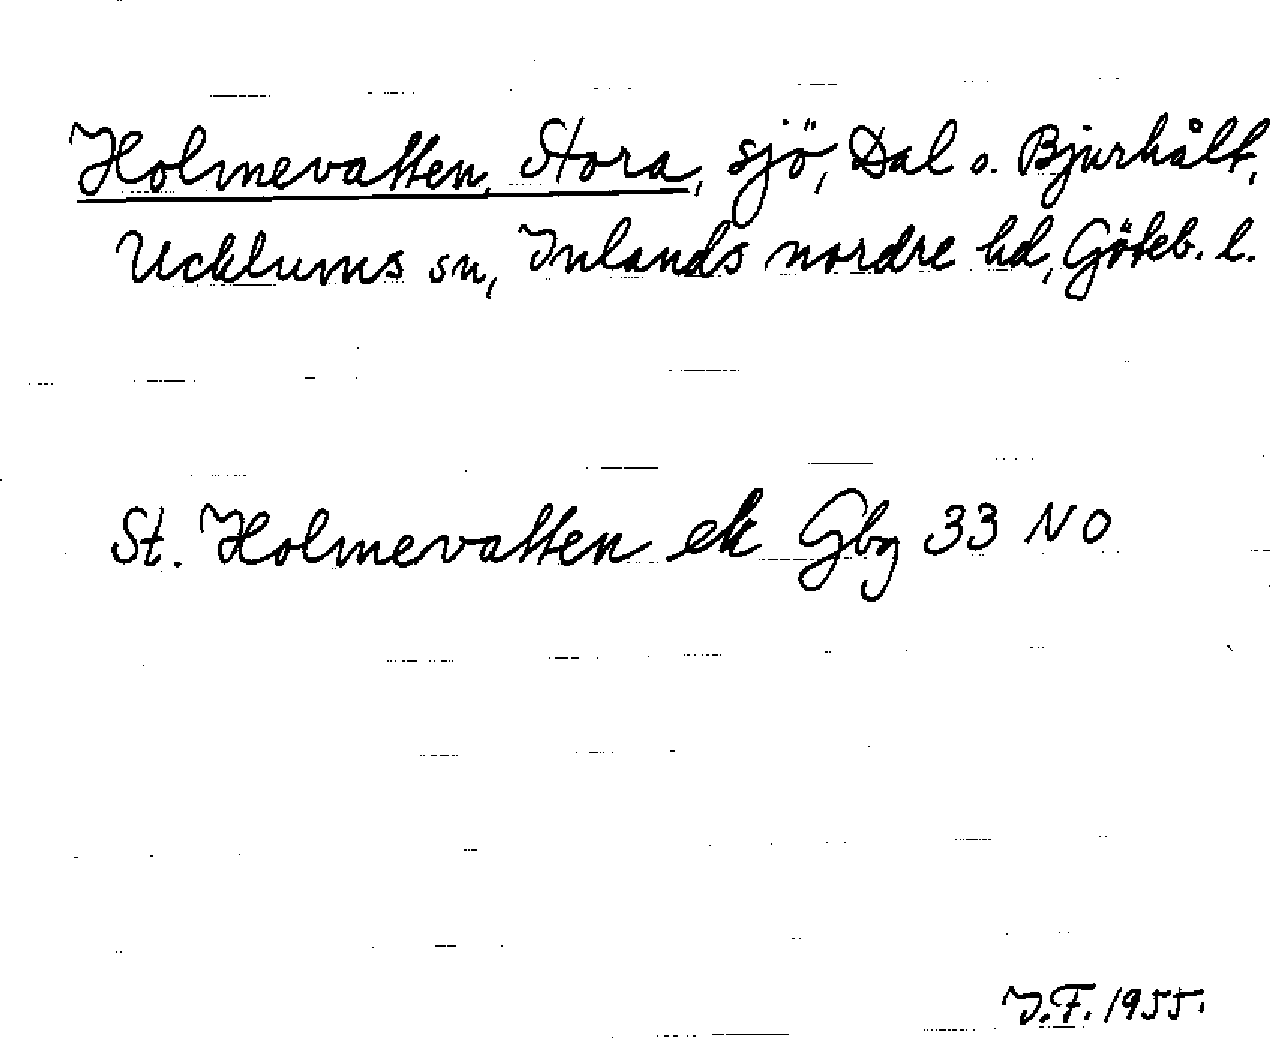 Holmevatten, Stora, sjö, Dal o. Bjurhålt,
Ucklums sn, Inlands nordre hd, Göteb. l.
St. Holmevatten ek Gbg 33 NO
I.F. 1955.